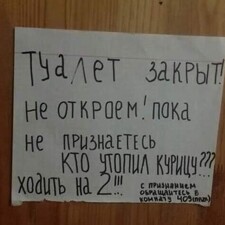 ТУАЛЕТ ЗАКРЫТ!
НЕ ОТКРОЕМ! ПОКА
НЕ ПРИЗНАЕТЕСЬ
КТО УТОПИЛ КУРИЦУ???
ХОДИТЬ НА 2!!!
С ПРИЗНАНИЕМ
ОБРАЩАЙТЕСЬ В
КОМНАТУ 403